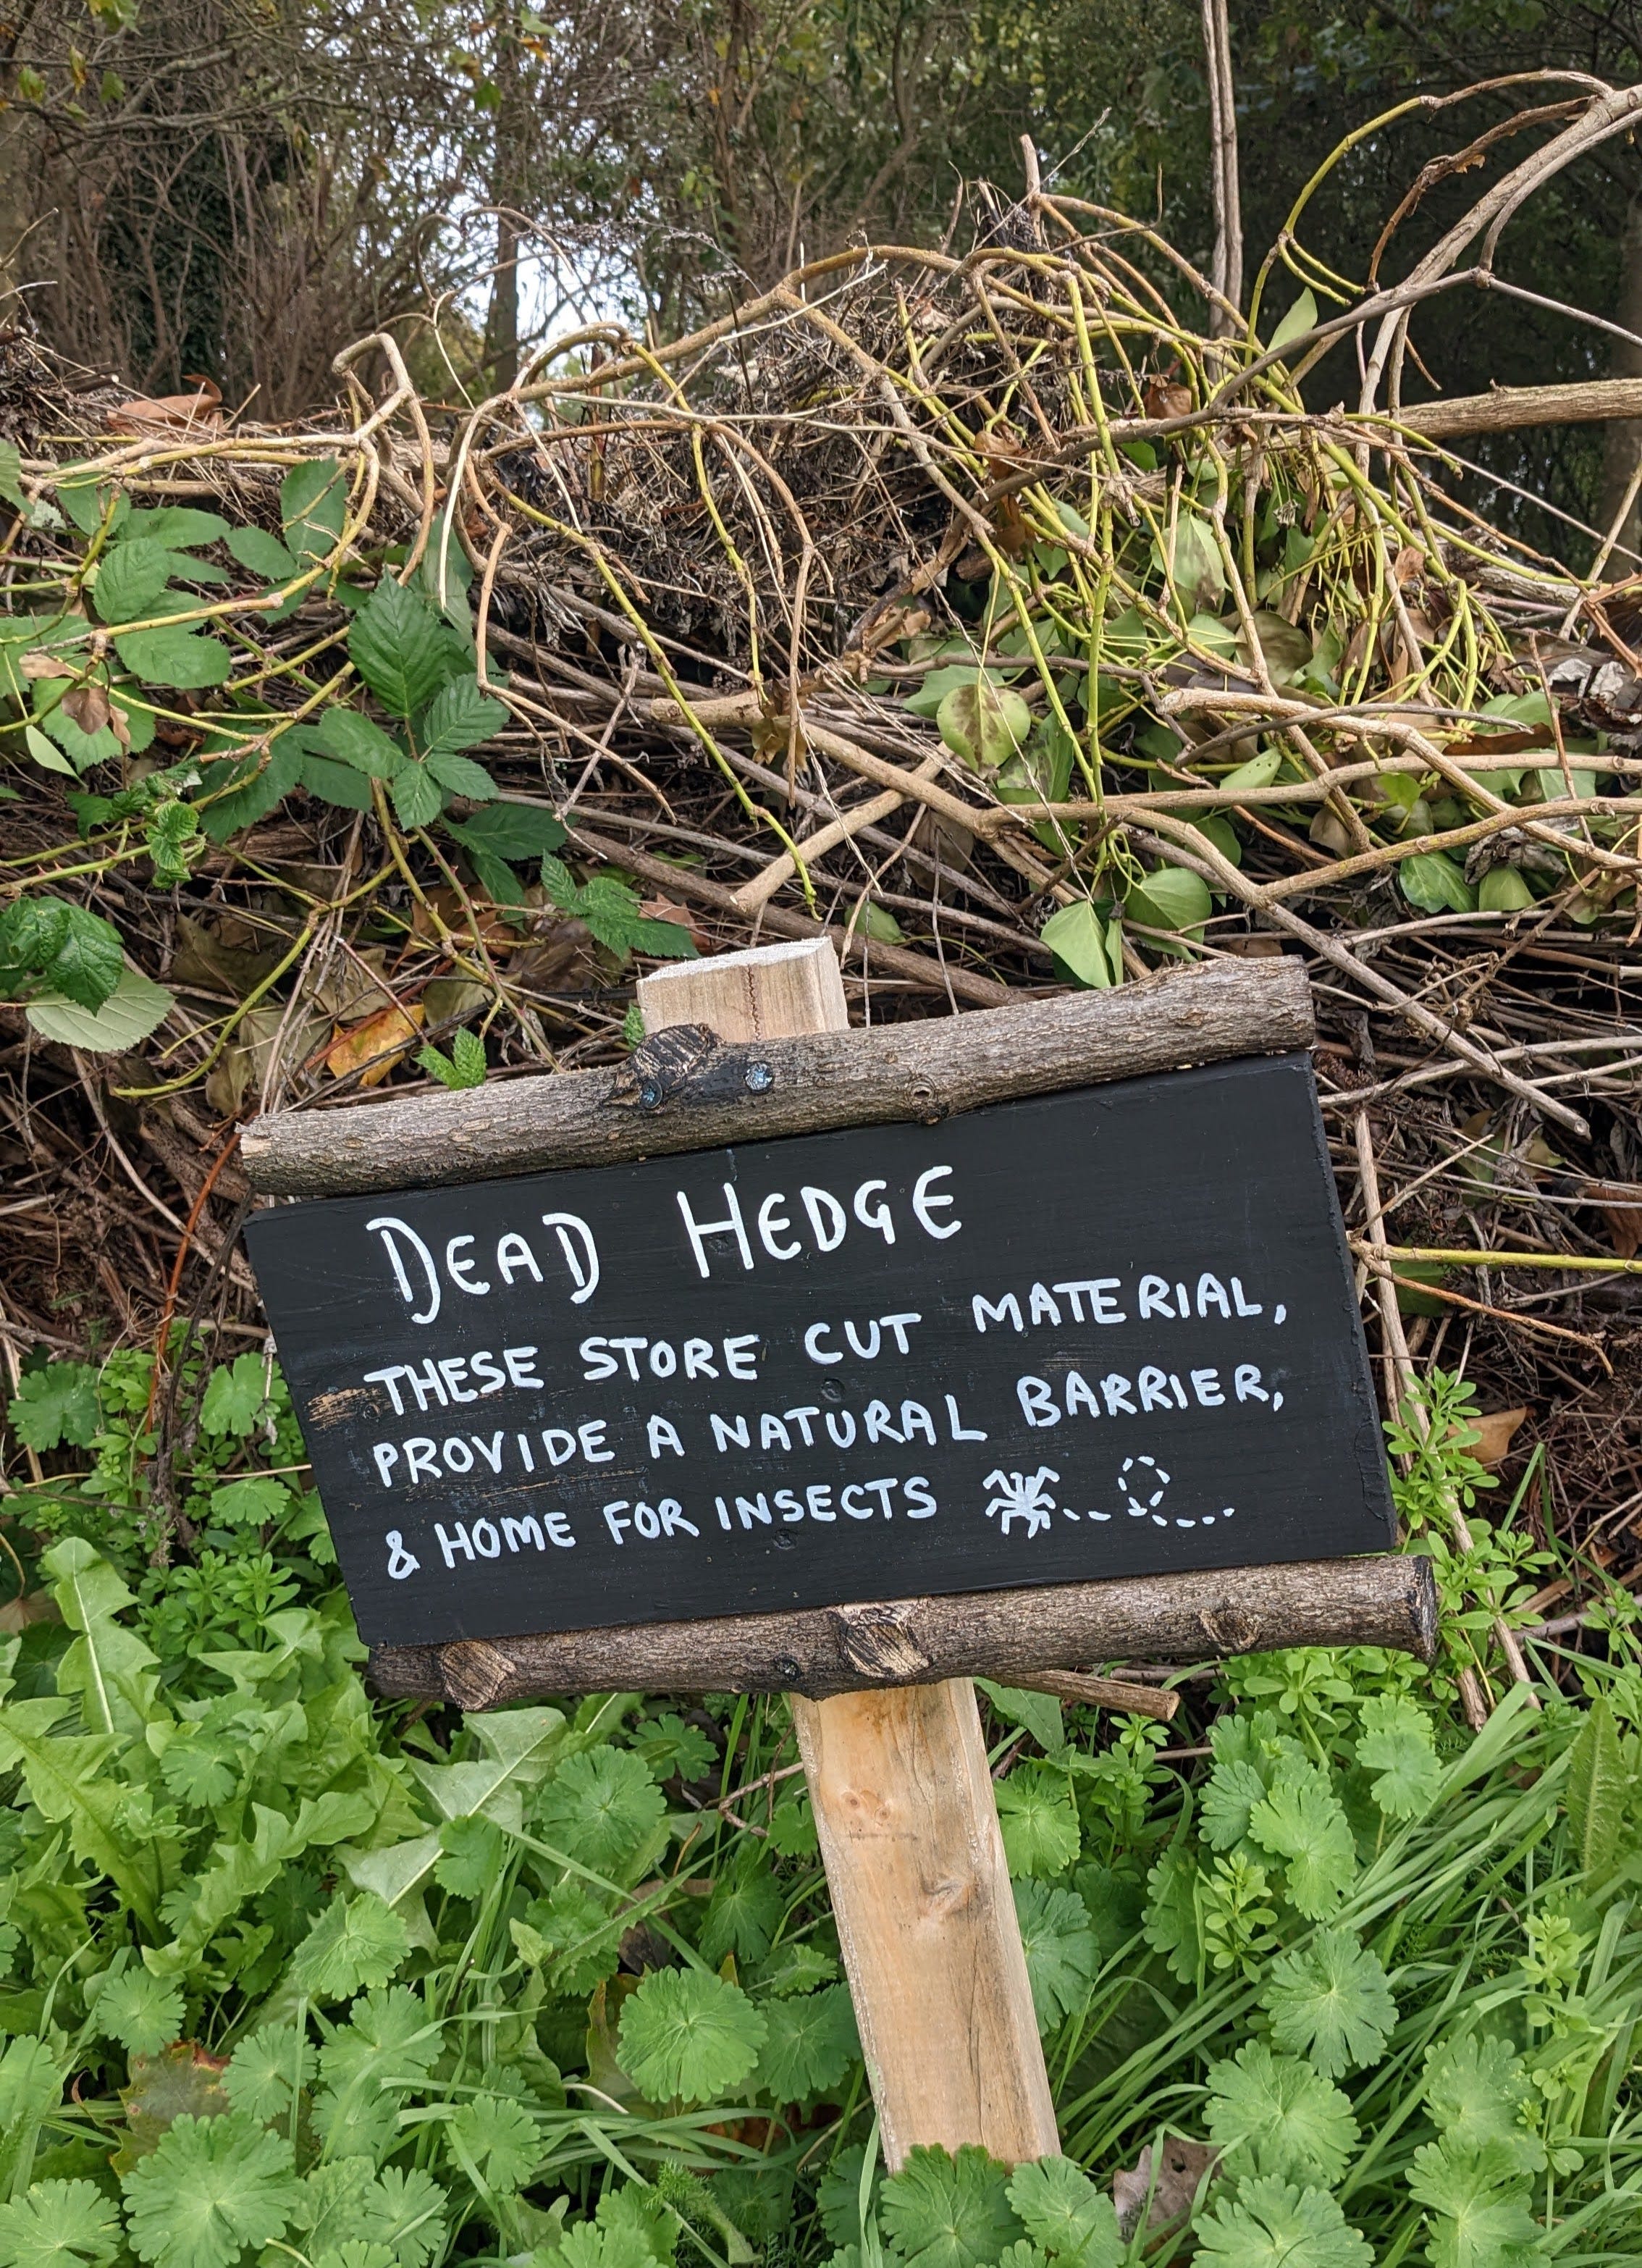 DEAD HEDGE
THESE STORE CUT MATERIAL,
PROVIDE A NATURAL BARRIER,
& HOME FOR INSECTS